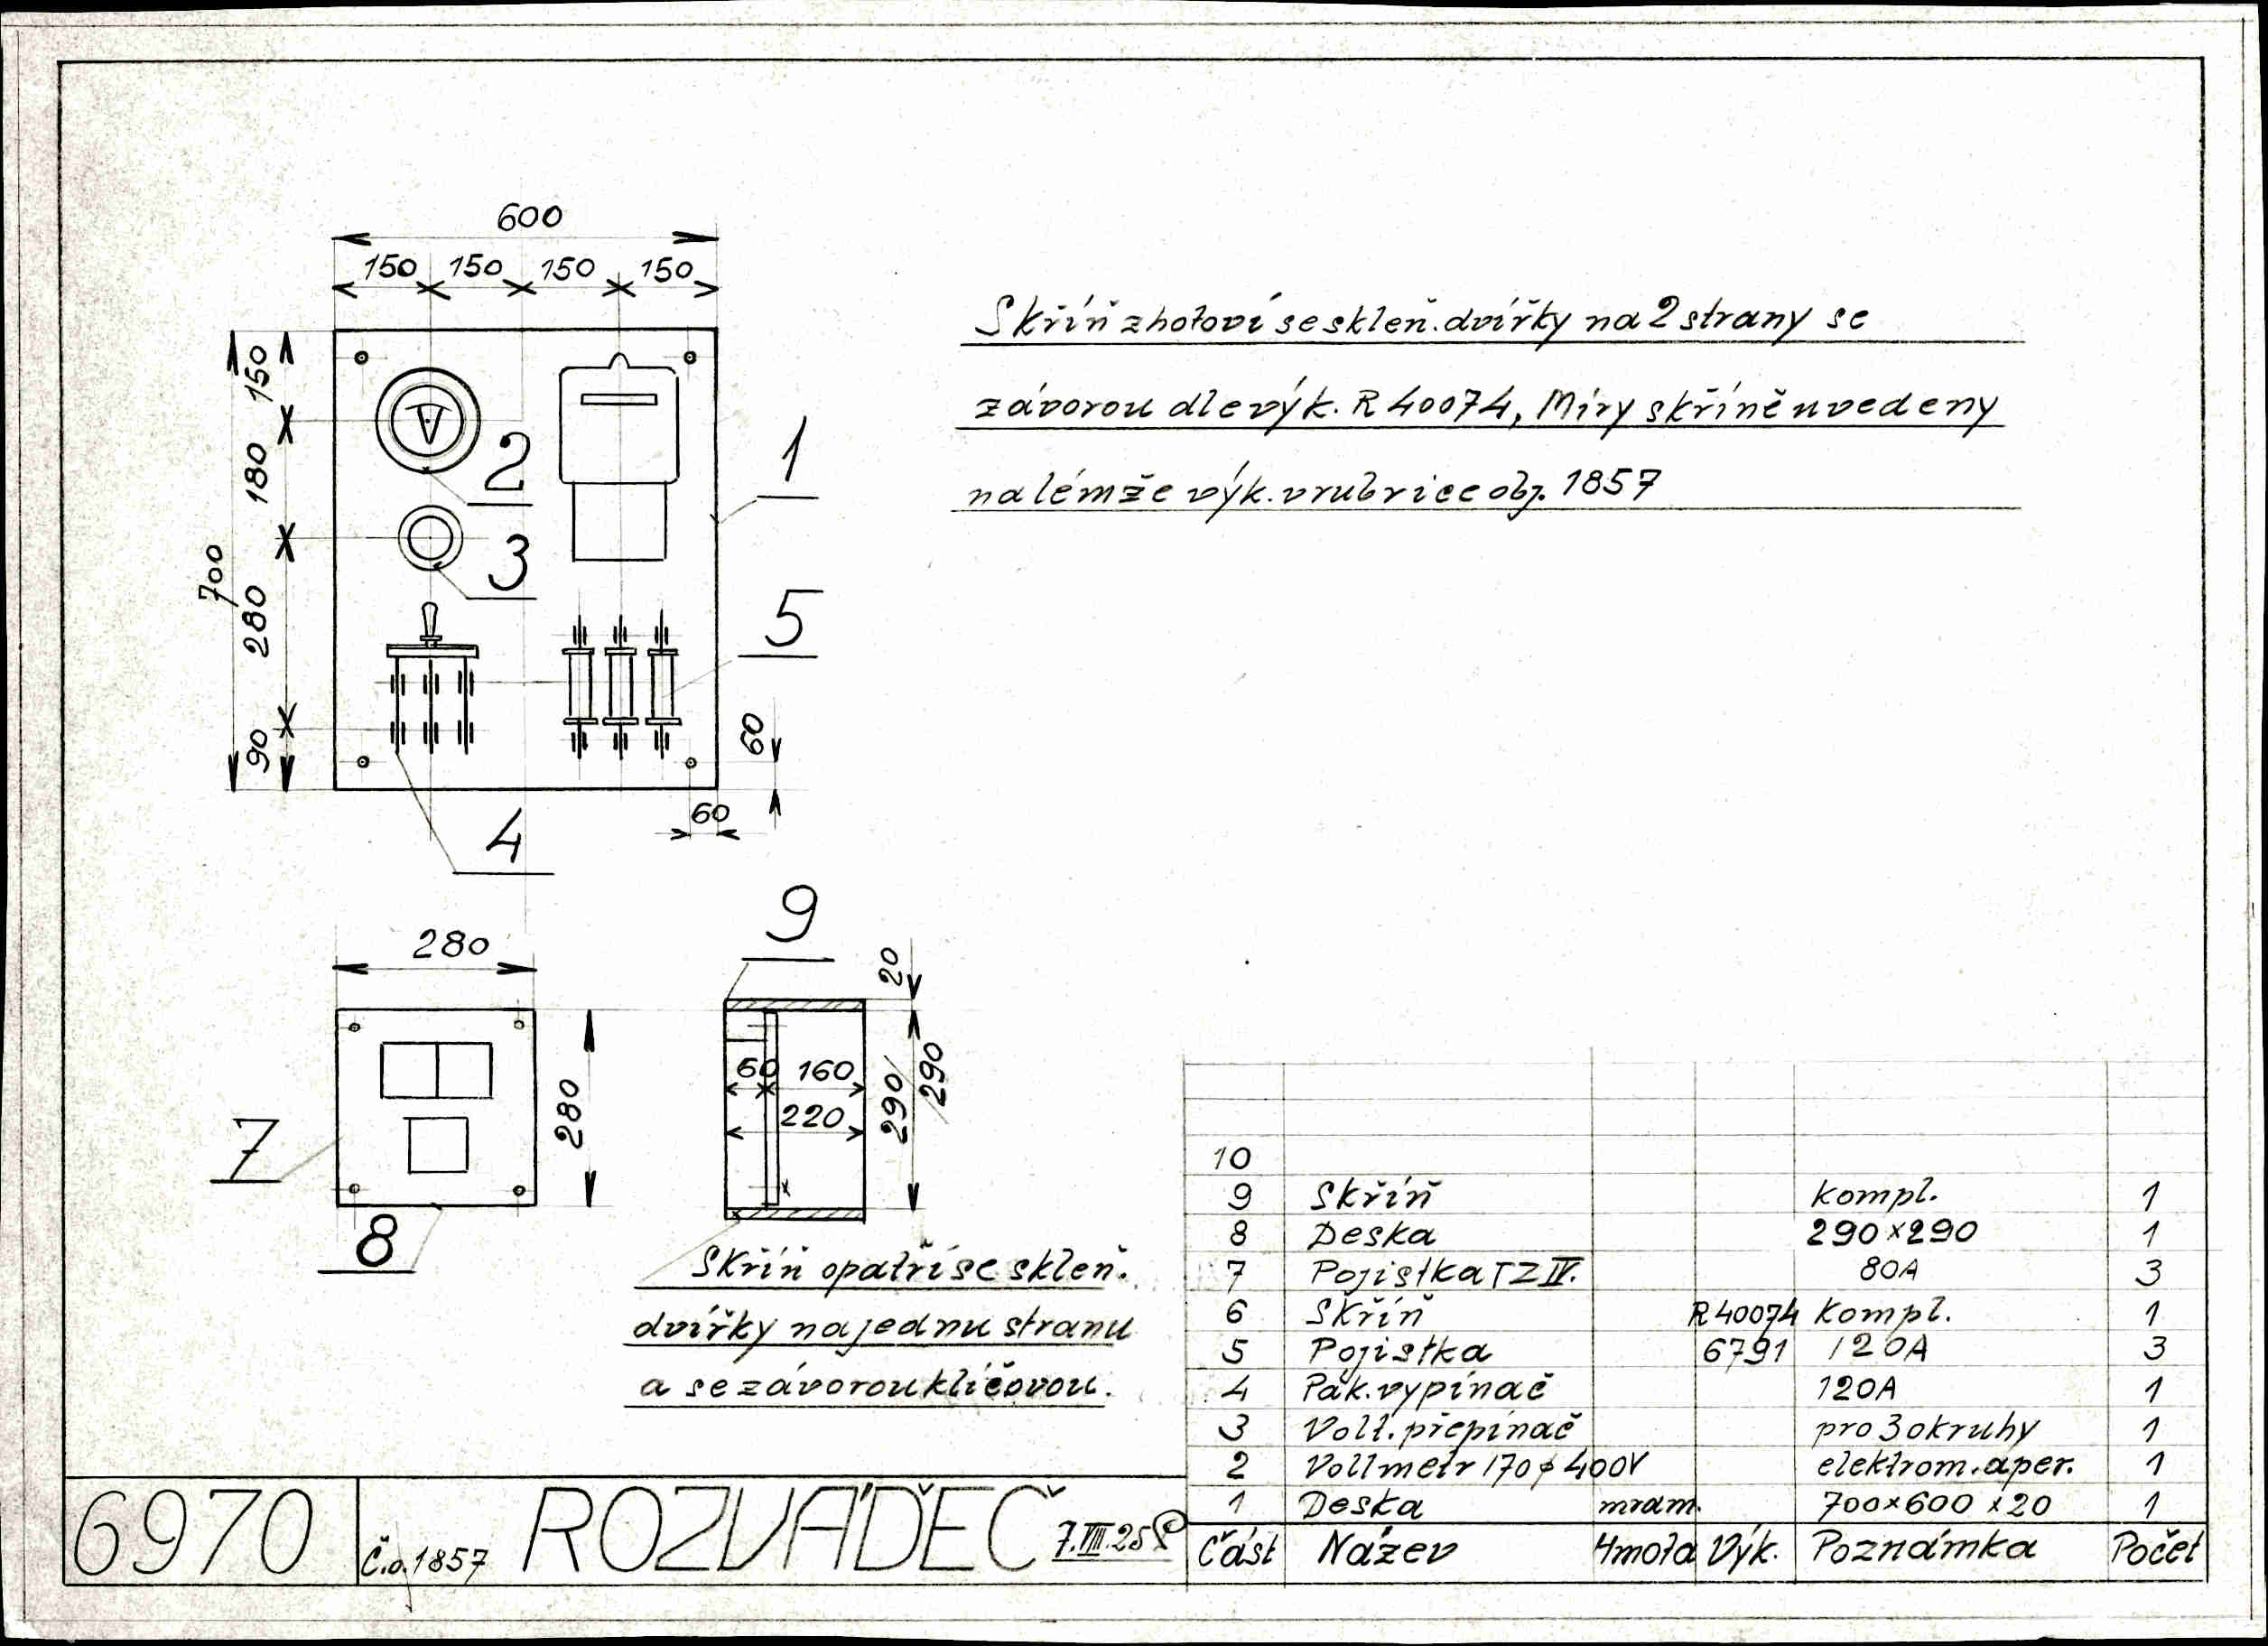 600
150 150 150 150
Skříň zhotoví se skleň. dvířky na 2 strany se
závorou dle výk. R 40074, Míry skříně uvedeny
na témže výk. v rubrice obj. 1857
700
150
180
280
90
1
2
3
5
60
60
4
9
280
280
7
8
20
60 160
220
290
290
Skříň opatří se skleň.
dvířky na jednu stranu
a se závorou klíčovou.
10
9 Skříň kompl. 1
8 Deska 290×290 1
7 Pojistka TZ IV. 80A 3
6 Skříň R40074 kompl. 1
5 Pojistka 6791 120A 3
4 Pák. vypínač 120A 1
3 Volt. přepínač pro 3 okruhy 1
2 Voltmetr 170 ϕ 400V elektrom. aper. 1
1 Deska mram. 700×600×20 1
Část Název Hmota Výk. Poznámka Počet
6970 Č.o. 1857 ROZVÁDĚČ 7.VIII.25